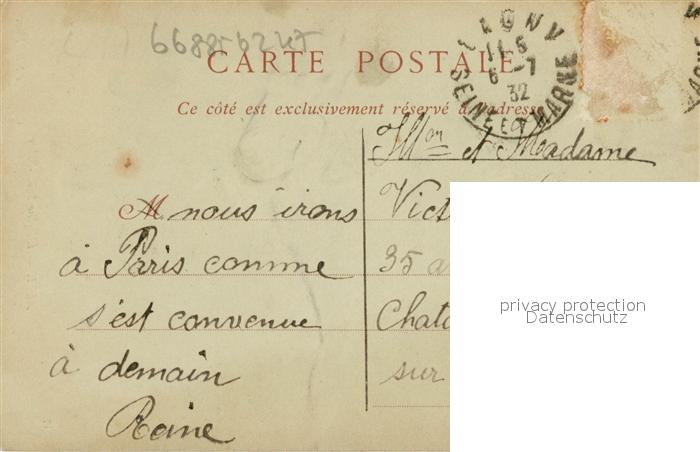 CARTE POSTALE
Ce côté est exclusivement réservé à l'adresse
LAGNY
11-5
6 -7
32
SEINE ET MARNE
Mon et Madame
Vict
35 a
Chato
sur
M nous irons
à Paris comme
s'est convenue
à demain
Reine
privacy protection
Datenschutz